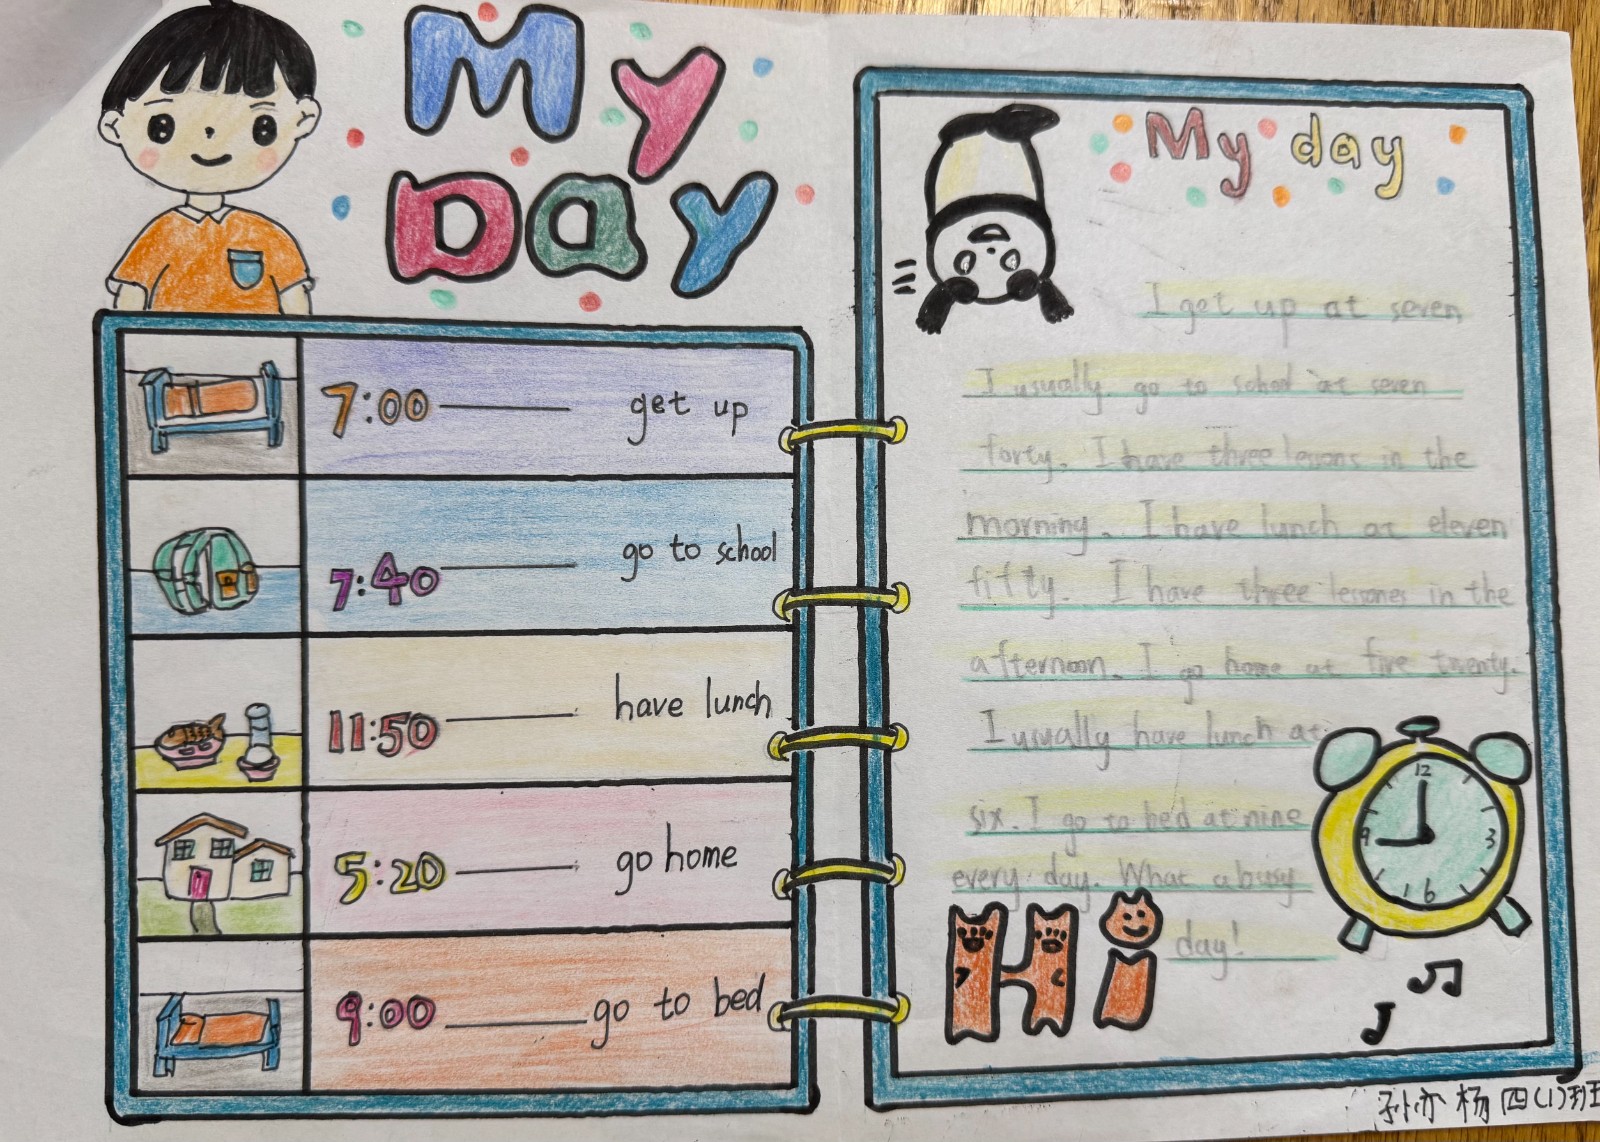 My
Day
7:00 get up
7:40 go to school
11:50 have lunch
5:20 go home
9:00 go to bed
My day
I get up at seven.
I usually go to school at seven
forty. I have three lessons in the
morning. I have lunch at eleven
fifty. I have three lessones in the
afternoon. I go home at five twenty.
I usually have lunch at
six. I go to bed at nine
every day. What a busy
day!
12
9 3
6
HI
孙亦杨 四(1)班